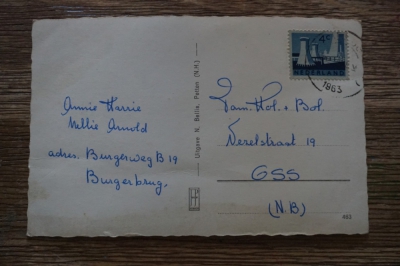 Annie Harrie
Nellie Arnold
adres. Burgerweg B 19
Burgerbrug.
Uitgave N. Beills, Petten (N.H.)
4c
NEDERLAND
1963
Fam. Hol. v. Bol.
Nerelstraat 19
OSS
(N.B)